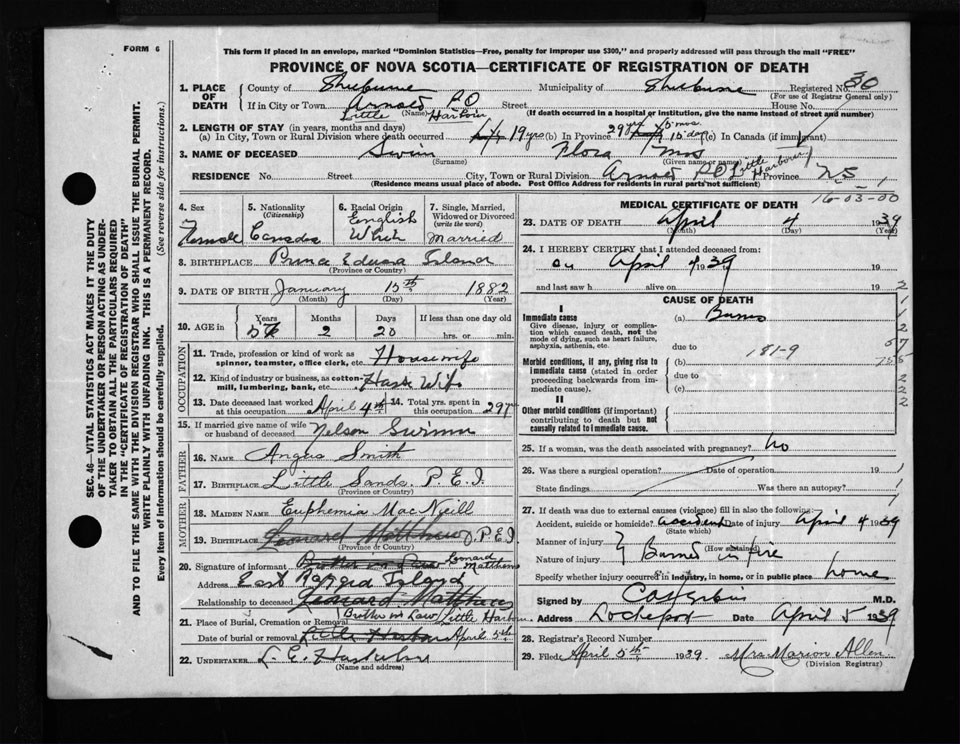 FORM 6
This form if placed in an envelope, marked "Dominion Statistics—Free, penalty for improper use $300," and properly addressed will pass through the mail "FREE"
PROVINCE OF NOVA SCOTIA—CERTIFICATE OF REGISTRATION OF DEATH
1. PLACE OF DEATH County of Shelburne Municipality of Shelburne Registered No. 30
(For use of Registrar General only)
If in City or Town Arnold PO Street House No.
Little (Name) Harbour (If death occurred in a hospital or institution, give the name instead of street and number)
2. LENGTH OF STAY (in years, months and days)
(a) In City, Town or Rural Division where death occurred 19 yrs (b) In Province 29 yrs 5 mos 15 days (c) In Canada (if immigrant)
3. NAME OF DECEASED Swim Flora Mrs
(Surname) (Given name or names)
RESIDENCE No. Street City, Town or Rural Division Arnold PO Little Harbour Province N S
(Residence means usual place of abode. Post Office Address for residents in rural parts not sufficient)
16-03-00
4. Sex Female
5. Nationality (Citizenship) Canada
6. Racial Origin English White
7. Single, Married, Widowed or Divorced (write the word) Married
8. BIRTHPLACE Prince Edward Island
(Province or Country)
9. DATE OF BIRTH January 15th 1882
(Month) (Day) (Year)
10. AGE in Years Months Days If less than one day old
2 20 hrs. or min.
OCCUPATION
11. Trade, profession or kind of work as spinner, teamster, office clerk, etc. Housewife
12. Kind of industry or business, as cotton-mill, lumbering, bank, etc. House Wife
13. Date deceased last worked at this occupation April 4th 14. Total yrs. spent in this occupation 29 yr
15. If married give name of wife or husband of deceased Nelson Swimm
FATHER
16. NAME Angus Smith
17. BIRTHPLACE Little Sands. P.E.I.
(Province or Country)
MOTHER
18. MAIDEN NAME Euphemia MacNeill
19. BIRTHPLACE Leonard Matthews P.E.I.
(Province or Country)
20. Signature of informant Brother in Law Leonard Matthews
Address East Ragged Island
Relationship to deceased Leonard Matthews
Brother in Law
21. Place of Burial, Cremation or Removal Little Harbour
Date of burial or removal Little Harbour April 5th
22. UNDERTAKER L. E.
(Name and address)
MEDICAL CERTIFICATE OF DEATH
23. DATE OF DEATH April 4 1939
(Month) (Day) (Year)
24. I HEREBY CERTIFY that I attended deceased from:
on April 4 1939 19
and last saw h alive on 19
CAUSE OF DEATH
I
Immediate cause (a) Burns
Give disease, injury or complication which caused death, not the mode of dying, such as heart failure, asphyxia, asthenia, etc.
due to
181-9
Morbid conditions, if any, giving rise to immediate cause (stated in order proceeding backwards from immediate cause). (b)
due to
(c)
II
Other morbid conditions (if important) contributing to death but not causally related to immediate cause.
25. If a woman, was the death associated with pregnancy? no
26. Was there a surgical operation? Date of operation 19
State findings Was there an autopsy?
27. If death was due to external causes (violence) fill in also the following:
Accident, suicide or homicide? accident Date of injury April 4 1939
(State which)
Manner of injury
(How sustained)
Nature of injury Burned in fire
Specify whether injury occurred in industry, in home, or in public place home
Signed by M.D.
Address Lockeport Date April 5 1939
28. Registrar's Record Number
29. Filed April 5th 1939 Mrs Marion Allen
(Division Registrar)
SEC. 46—VITAL STATISTICS ACT MAKES IT THE DUTY
OF THE UNDERTAKER OR PERSON ACTING AS UNDER-
TAKER TO OBTAIN ALL THE PARTICULARS REQUIRED
IN THE "CERTIFICATE OF REGISTRATION OF DEATH"
AND TO FILE THE SAME WITH THE DIVISION REGISTRAR WHO SHALL ISSUE THE BURIAL PERMIT.
WRITE PLAINLY WITH UNFADING INK. THIS IS A PERMANENT RECORD.
Every item of information should be carefully supplied. (See reverse side for instructions.)